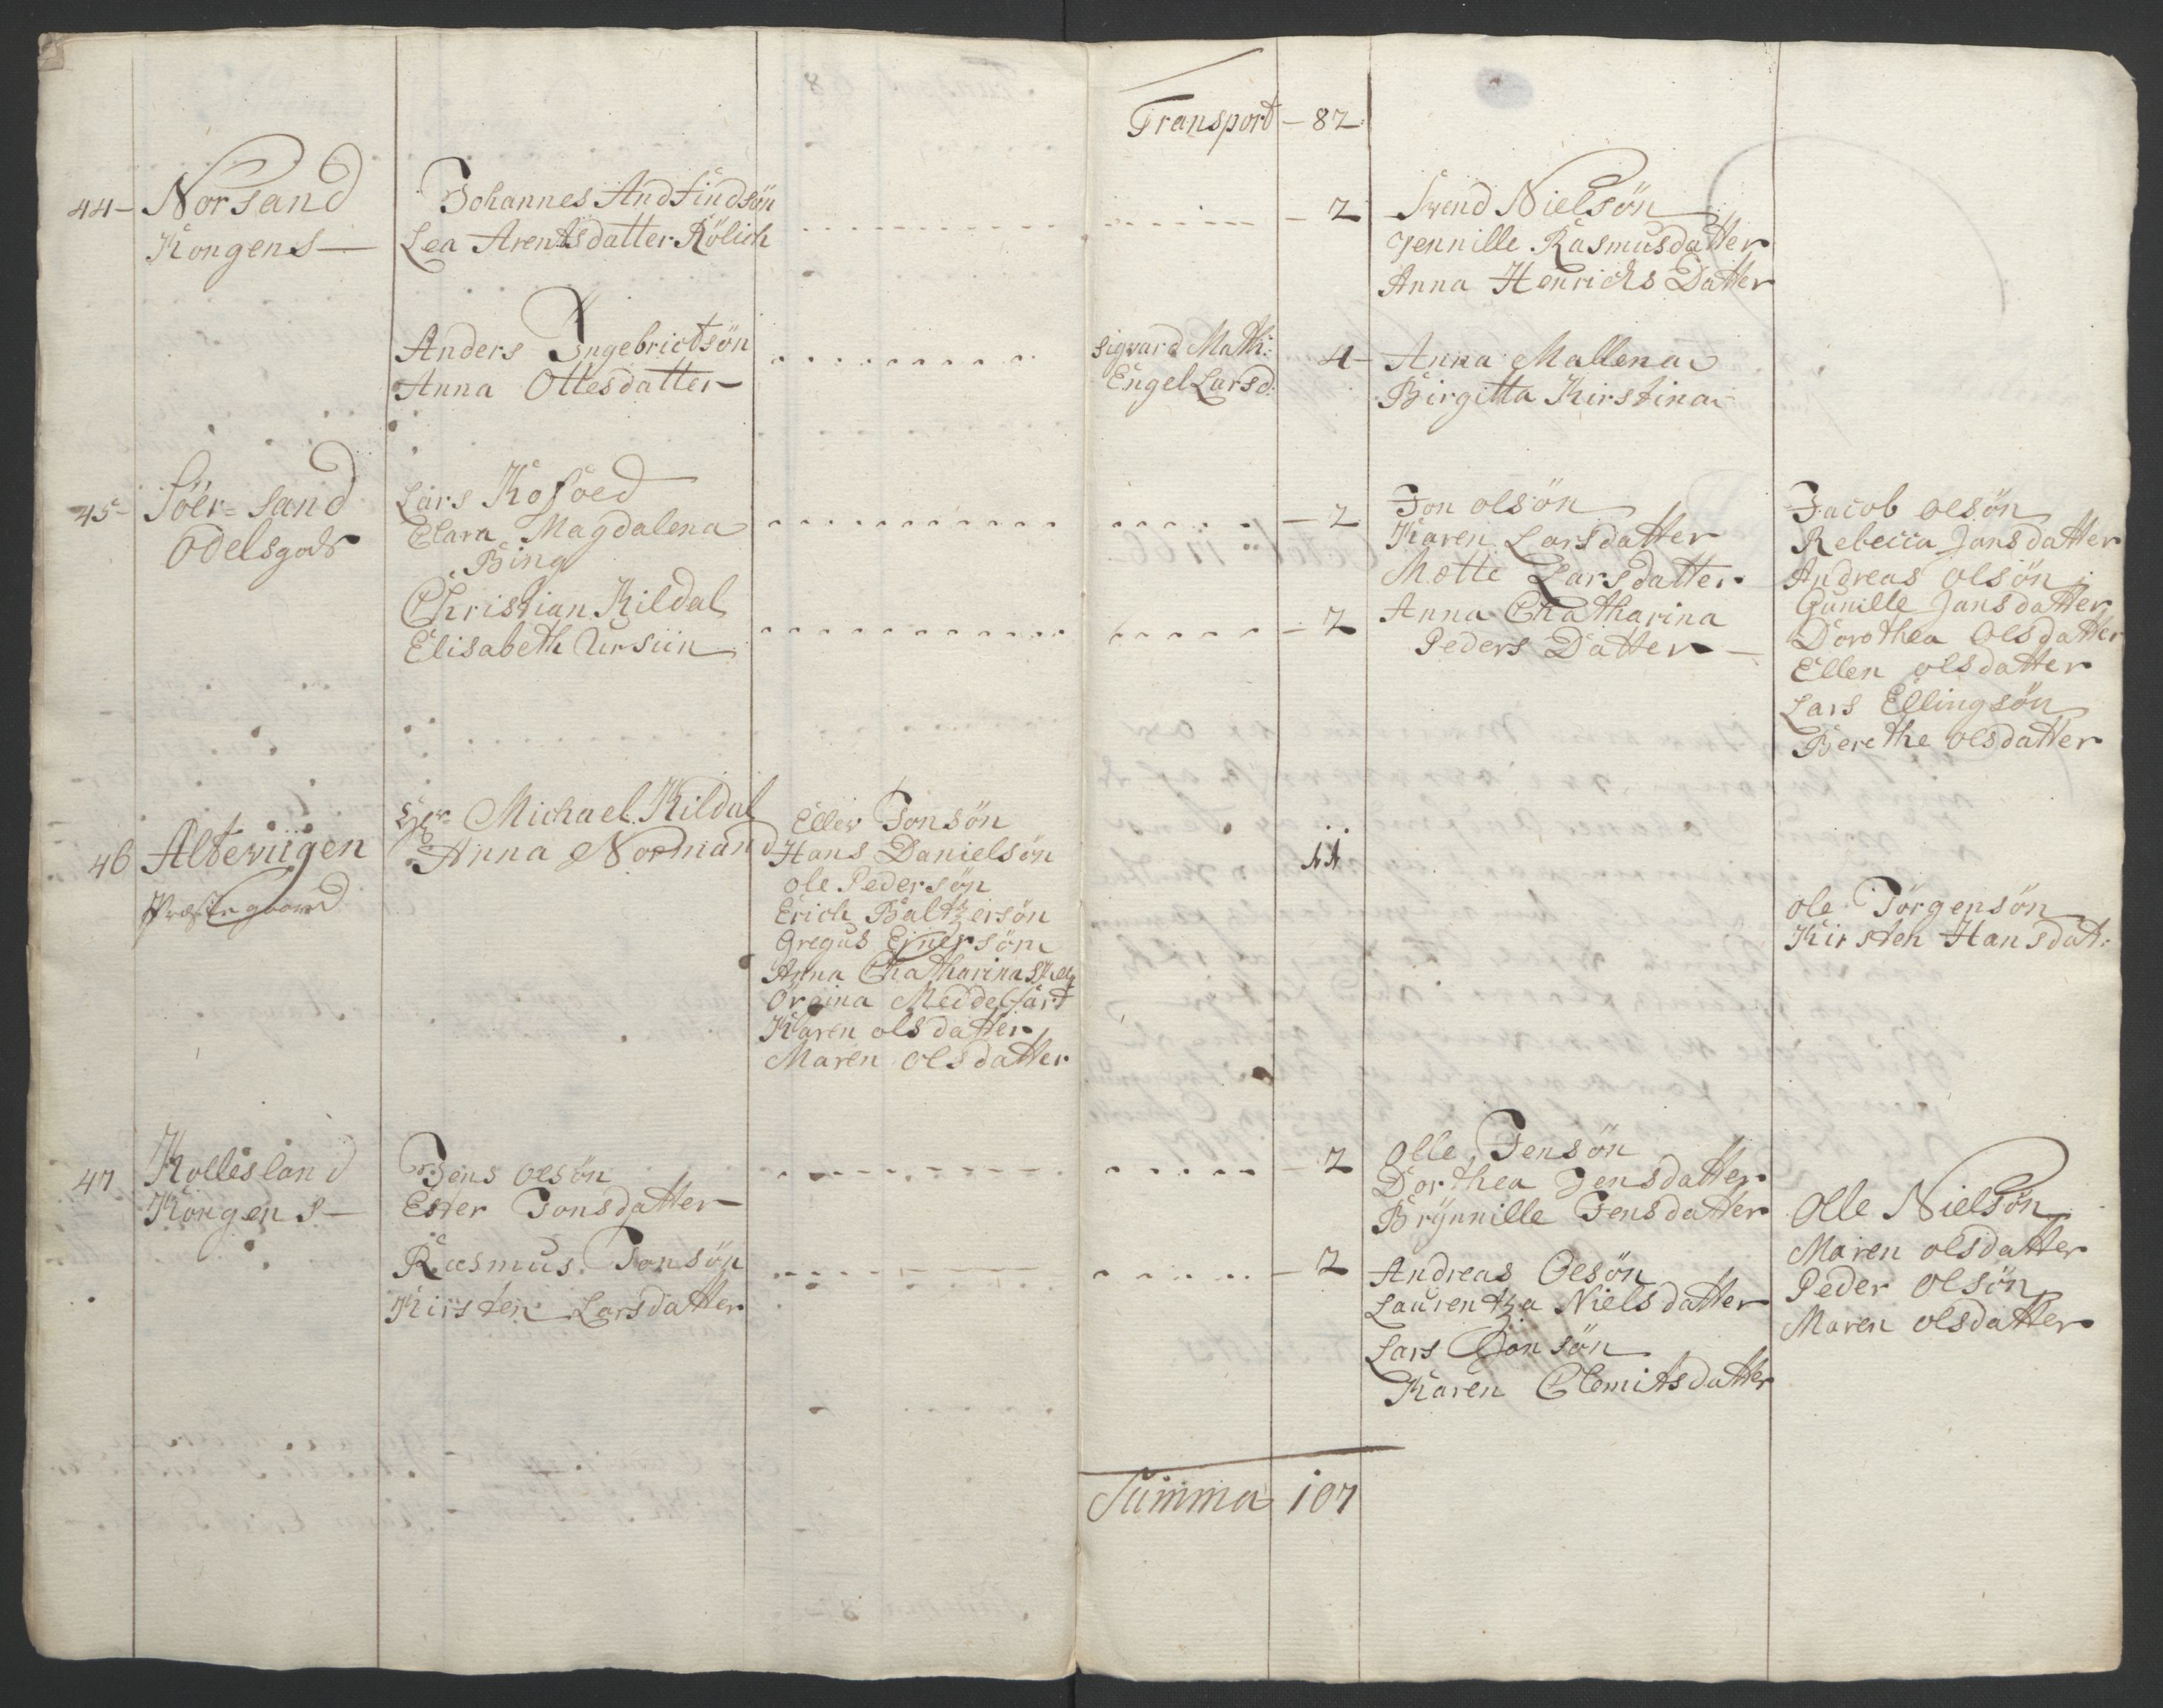 Transport – 82
44– Norsand
Kongens –
Johannes Andfindsön
Lea Arentsdatter Rölich
– 2
Svend Nielsön
Jennille Rasmusdatter
Anna Henrichs Datter
Anders Ingebrictsön
Anna Ottesdatter
Sigvard Math:
Engel Larsd:
4–
Anna Mallena
Birgitta Kirstina
45– Söer=Sand
Odelsgods
Lars Kofoed
Clara Magdalena
Bing
– 2
Jon olsön
Karen Larsdatter
Mette Larsdatter
Christian Kildal
Elisabeth Ursiin
– 2
Anna Chatharina
Peders Datter –
Jacob olsön
Rebecca Jansdatter
Andreas olsön
Gunille Jansdatter
Dorothea olsdatter
Ellen olsdatter
Lars Ellingsön
Berethe olsdatter
46 Altevigen
Præstegaard
Hr Michael Kildal
Anna Normand
Eller Jonsön
Hans Danielsön
ole Pedersön
Erich Baltzersön
Gregus Ejnersön
Anna Chatharina
Meddelfart
Karen olsdatter
Maren olsdatter
11
ole Jörgensön
Kirsten Hansdat:
47 Kollesland
Kongens –
Jens olsön
Ester Jonsdatter
– 2
Olle Jensön
Dorthea Jensdatter
Brynnille Jensdatter
Rasmus Jonsön
Kirsten Larsdatter
– 2
Andreas Olsön
Laurentza Nielsdatter
Lars Jonsön
Karen Clemitsdatter
Olle Nielsön
Maren olsdatter
Peder olsön
Maren olsdatter
Summa 107